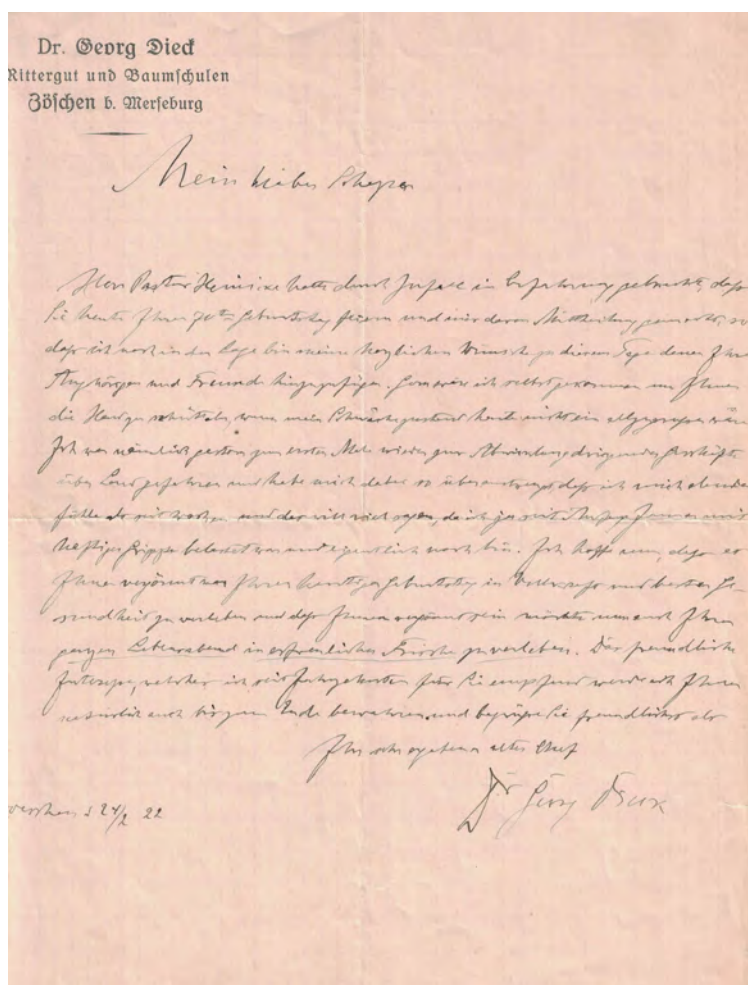 Dr. Georg Dieck
Rittergut und Baumschulen
Zöschen b. Merseburg
Mein lieber
Herr Pastor Heinicke hatte durch Zufall in Erfahrung gebracht, dass
Sie heute Ihren 70ten Geburtstag feiern und mir davon Mittheilung gemacht, so
dass ich noch in der Lage bin meine herzlichen Wünsche zu diesem Tage denen Ihrer
Angehörigen und Freunde hinzuzufügen. Gern wäre ich selbst gekommen um Ihnen
die Hand zu schütteln, wenn mein Schwächezustand heute nicht ein allzugrosser wäre
Ich war nämlich gestern zum ersten Male wieder zur Abwickelung dringender Geschäfte
über Land gefahren und habe mich dabei so überanstrengt dass ich mich elender
fühle als seit Wochen und das will viel sagen, da ich ja seit Anfang Januar mit
heftiger Grippe belastet war und eigentlich noch bin. Ich hoffe nun, dass es
Ihnen vergönnt war Ihren heutigen Geburtstag in und bester Ge-
sundheit zu verleben und dass Ihnen vergönnt sein möchte nun auch Ihren
ganzen Lebensabend in erfreulicher Frische zu verleben. Das freundliche
Interesse, welches ich seit Jahrzehnten für Sie empfand werde ich Ihnen
natürlich auch bis zum Ende bewahren und begrüsse Sie freundlichst als
Ihr sehr ergebener alter Chef
Dr Georg Dieck
22